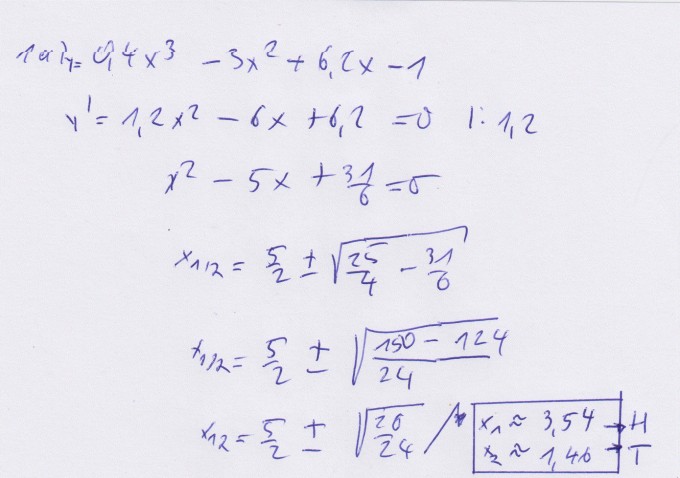 1a) y = 0,4x³ - 3x² + 6,2x - 1
y' = 1,2x² - 6x + 6,2 = 0 |: 1,2
x² - 5x + 31/6 = 0
x1/2 = 5/2 ± √(25/4 - 31/6)
x1/2 = 5/2 ± √((150 - 124)/24)
x12 = 5/2 ± √(26/24) / x1 ≈ 3,54 → H
x2 ≈ 1,46 → T